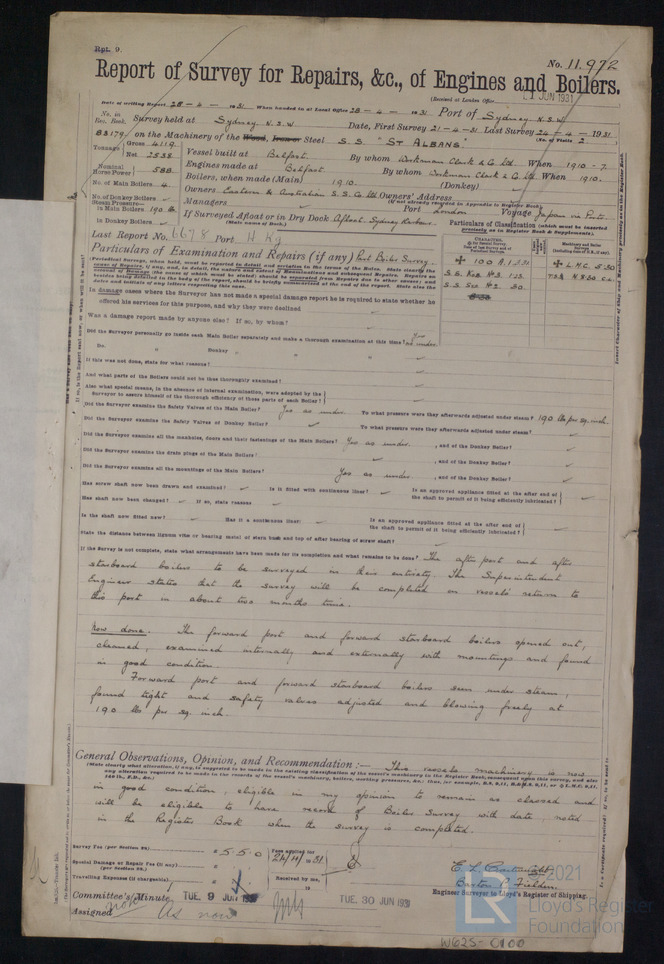 Rpt. 9.
No. 11.972
Report of Survey for Repairs, &c., of Engines and Boilers.
(Received at London Office JUN 1931
Date of writing Report 28-4-1931 When handed in at Local Office 28-4-1931 Port of Sydney N.S.W.
No. in Reg. Book. Survey held at Sydney N.S.W. Date, First Survey 21-4-31 Last Survey 24-4-1931
(No. of Visits 2)
83179 on the Machinery of the Wood, Iron or Steel S.S. "ST ALBANS"
Tonnage Gross 4119 Net 2538
Vessel built at Belfast By whom Workman Clark & Co Ltd When 1910-7
Engines made at Belfast By whom Workman Clark & Co Ltd When 1910.
Nominal Horse Power 588
Boilers, when made (Main) 1910. (Donkey) ✓
No. of Main Boilers 4
Owners Eastern & Australian S.S. Co Ltd Owners' Address
(if not already recorded in Appendix to Register Book.)
No. of Donkey Boilers ✓
Managers Port London Voyage Japan via Ports
Steam Pressure in Main Boilers 190 lb
If Surveyed Afloat or in Dry Dock Afloat Sydney Harbour
(State name of Dock.)
in Donkey Boilers ✓
Particulars of Classification (which must be inserted precisely as in Register Book & Supplements).
Last Report No. 6678 Port H Kg
Particulars of Examination and Repairs (if any) Part Boiler Survey
+ 100 A.1
+ L.M.C. 5.30
In damage cases where the Surveyor has not made a special damage report he is required to state whether he
offered his services for this purpose, and why they were declined
Was a damage report made by anyone else? If so, by whom?
Did the Surveyor personally go inside each Main Boiler separately and make a thorough examination at this time? Yes as under
Do. " Donkey " " " "
If this was not done, state for what reasons?
And what parts of the Boilers could not be thus thoroughly examined?
Also what special means, in the absence of internal examination, were adopted by the
Surveyor to assure himself of the thorough efficiency of those parts of each Boiler?
Did the Surveyor examine the Safety Valves of the Main Boiler? Yes as under To what pressure were they afterwards adjusted under steam? 190 lbs per sq. inch.
Did the Surveyor examine the Safety Valves of Donkey Boiler? ✓ To what pressure were they afterwards adjusted under steam?
Did the Surveyor examine all the manholes, doors and their fastenings of the Main Boilers? Yes as under. , and of the Donkey Boiler?
Did the Surveyor examine the drain plugs of the Main Boilers? , and of the Donkey Boiler?
Did the Surveyor examine all the mountings of the Main Boilers? Yes as under , and of the Donkey Boiler?
Has screw shaft now been drawn and examined? ✓ Is it fitted with continuous liner? ✓ Is an approved appliance fitted at the after end of
the shaft to permit of it being efficiently lubricated?
Has shaft now been changed? ✓ If so, state reasons
Is the shaft now fitted new? Has it a continuous liner? Is an approved appliance fitted at the after end of
the shaft to permit of it being efficiently lubricated?
State the distance between lignum vitæ or bearing metal of stern bush and top of after bearing of screw shaft?
If the Survey is not complete, state what arrangements have been made for its completion and what remains to be done? The after port and after
starboard boilers to be surveyed in their entirety. The Superintendent
Engineer states that the survey will be completed on vessels return to
this port in about two months time.
Now done. The forward port and forward starboard boilers opened out,
cleaned, examined internally and externally with mountings and found
in good condition
Forward port and forward starboard boilers seen under steam,
found tight and safety valves adjusted and blowing freely at
190 lbs per sq. inch.
General Observations, Opinion, and Recommendation:— This vessels machinery is now
in good condition, eligible in my opinion to remain as classed and
will be eligible to have record of Boiler Survey with date, noted
in the Register Book when the survey is completed.
Survey Fee (per Section 28) £ 5.5.0 Fees applied for 24/4/1931
Special Damage or Repair Fee (if any) (per Section 28.) £
Travelling Expenses (if chargeable) £ Received by me,
Engineer Surveyor to Lloyd's Register of Shipping.
Committee's Minute TUE. 9 JUN 1931 TUE. 30 JUN 1931
Assigned As now
© 2021
LR
Lloyd's Register
Foundation
W625-0100